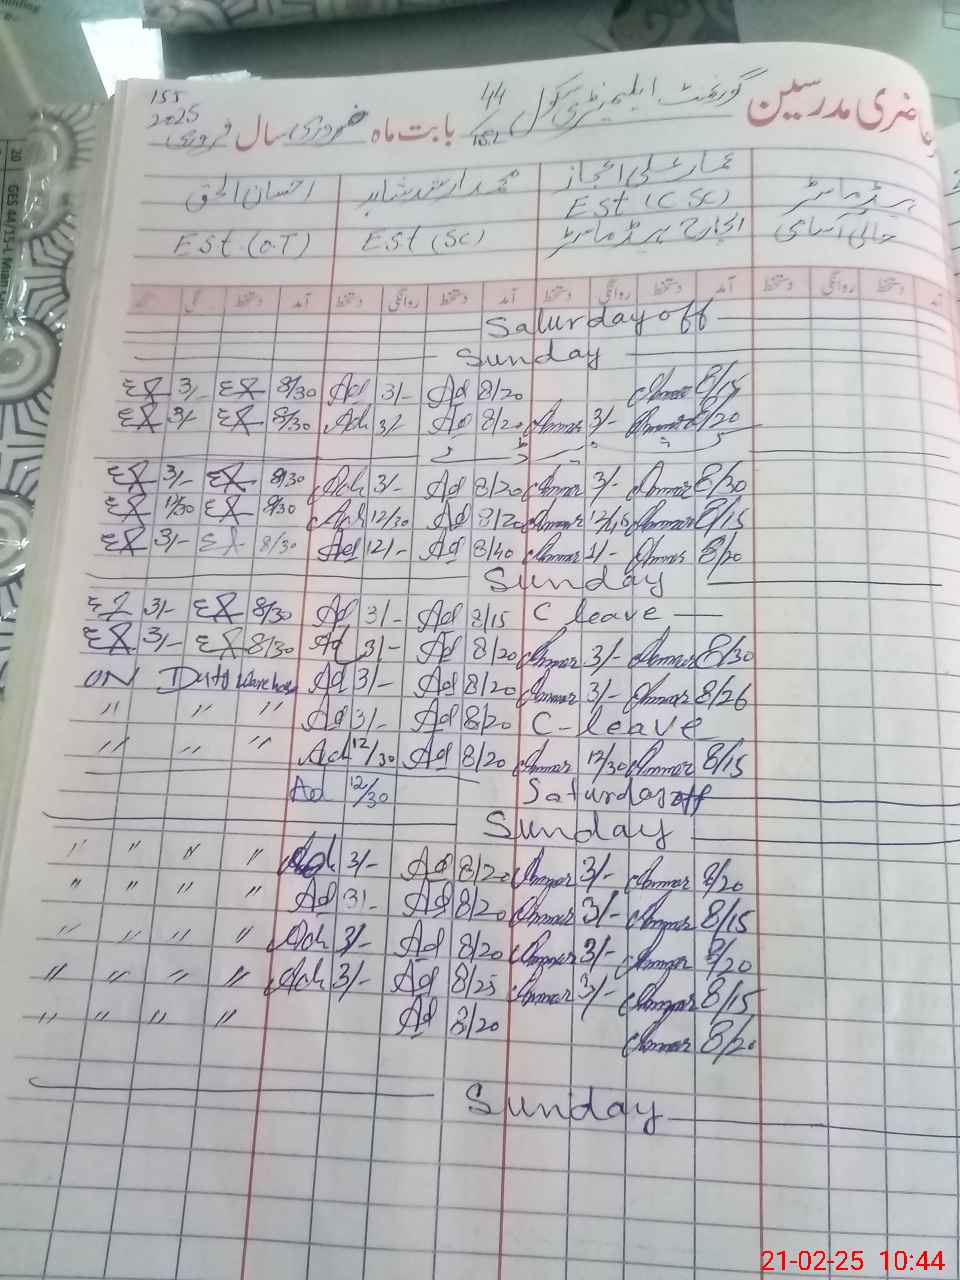 حاضری مدرسین گورنمنٹ ایلیمنٹری سکول 44/15.L بابت ماہ فروری سال فروری 2025
155
ہیڈ ماسٹر عمار علی اعجاز محمد ارشد شاہد احسان الحق
خالی آسامی ESt (C SC) انچارج ہیڈ ماسٹر ESt (SC) ESt (O.T)
آمد دستخط روانگی دستخط آمد دستخط روانگی دستخط آمد دستخط روانگی دستخط آمد دستخط
Saturday off
Sunday
3/- 8/30 Ad 3/- Ad 8/20 Ammar 8/15
3/- 8/30 Ad 3/- Ad 8/20 Ammar 3/- Ammar 8/20
3/- 8/30 Ad 3/- Ad 8/20 Ammar 3/- Ammar 8/30
12/30 8/30 Ad 12/30 Ad 8/20 Ammar 12/15 Ammar 8/15
3/- 8/30 Ad 12/- Ad 8/40 Ammar 1/- Ammar 8/20
Sunday
3/- 8/30 Ad 3/- Ad 8/15 C leave
3/- 8/30 Ad 3/- Ad 8/20 Ammar 3/- Ammar 8/30
ON Duty Ad 3/- Ad 8/20 Ammar 3/- Ammar 8/26
〃 〃 〃 Ad 3/- Ad 8/20 C-leave
〃 〃 〃 Ad 12/30 Ad 8/20 Ammar 12/30 Ammar 8/15
Ad 12/30 Saturday off
Sunday
〃 〃 〃 〃 Ad 3/- Ad 8/20 Ammar 3/- Ammar 8/20
〃 〃 〃 〃 Ad 3/- Ad 8/20 Ammar 3/- Ammar 8/15
〃 〃 〃 〃 Ad 3/- Ad 8/20 Ammar 3/- Ammar 8/20
〃 〃 〃 〃 Ad 3/- Ad 8/25 Ammar 3/- Ammar 8/15
〃 〃 〃 〃 Ad 8/20 Ammar 8/20
Sunday
21-02-25 10:44